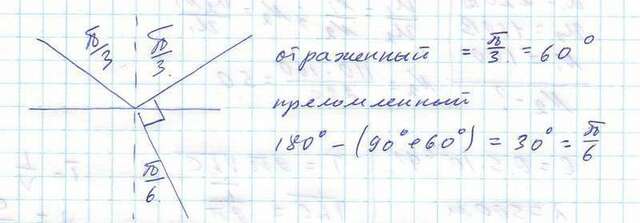 π/3 π/3.
отраженный = π/3 = 60°
преломленный
180° - (90° + 60°) = 30° = π/6
π/6.